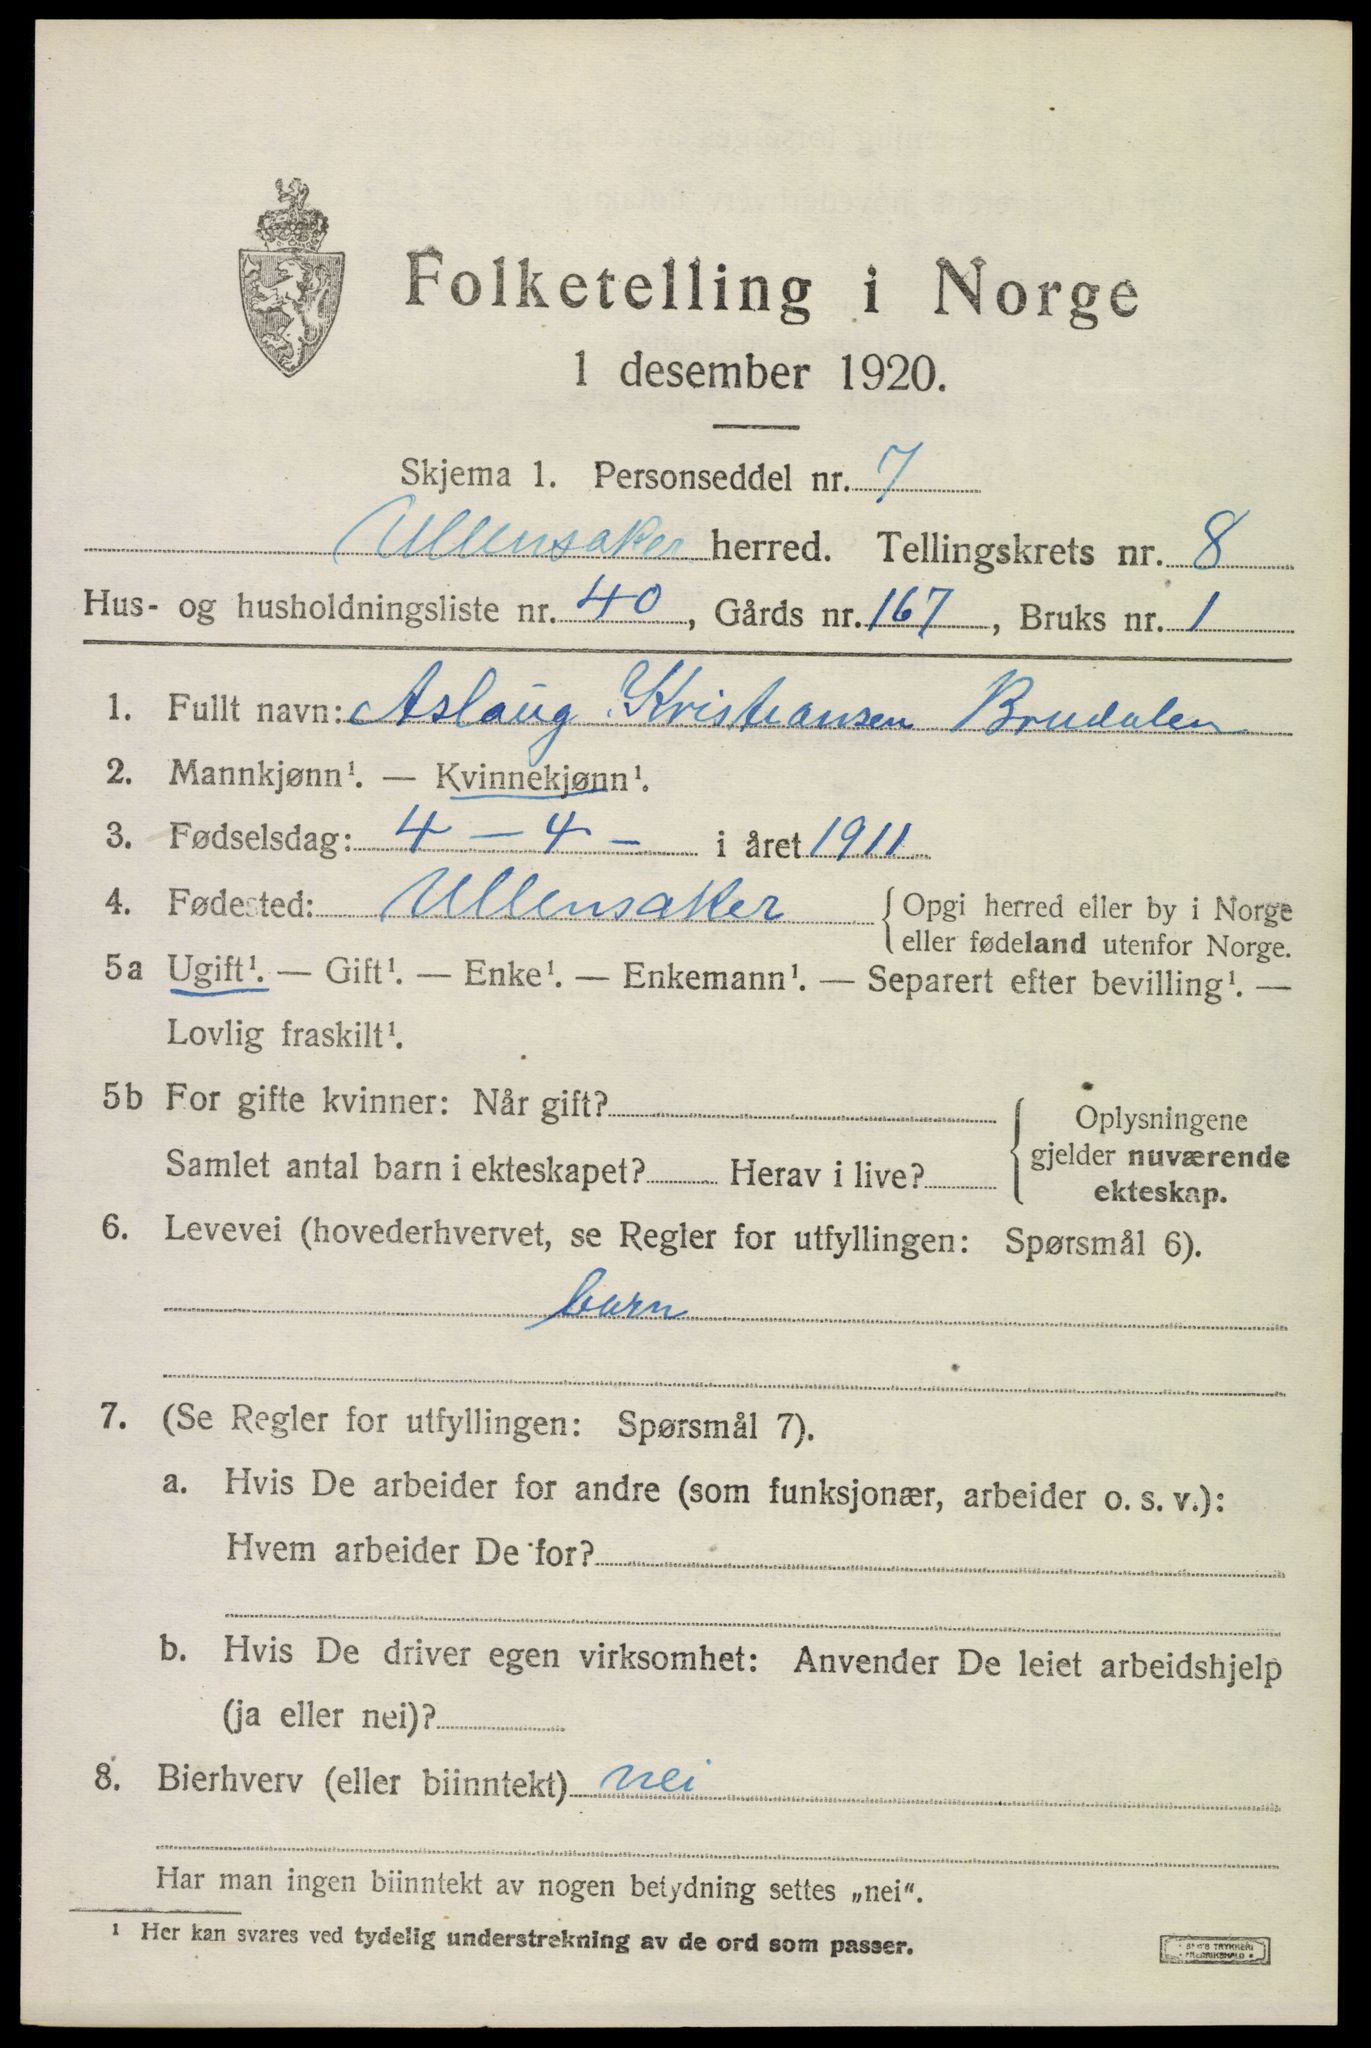 Folketelling i Norge
1 desember 1920.
Skjema 1. Personseddel nr. 7
Ullensaker herred. Tellingskrets nr. 8
Hus- og husholdningsliste nr. 40, Gårds nr. 167, Bruks nr. 1
1. Fullt navn: Aslaug Kristiansen Brudalen
2. Mannkjønn¹. — Kvinnekjønn¹.
3. Fødselsdag: 4 — 4 — i året 1911
4. Fødested: Ullensaker { Opgi herred eller by i Norge
eller fødeland utenfor Norge.
5a Ugift¹. — Gift¹. — Enke¹. — Enkemann¹. — Separert efter bevilling¹. —
Lovlig fraskilt¹.
5b For gifte kvinner: Når gift?
Samlet antal barn i ekteskapet? Herav i live?
Oplysningene
gjelder nuværende
ekteskap.
6. Levevei (hovederhvervet, se Regler for utfyllingen: Spørsmål 6).
barn
7. (Se Regler for utfyllingen: Spørsmål 7).
a. Hvis De arbeider for andre (som funksjonær, arbeider o. s. v.):
Hvem arbeider De for?
b. Hvis De driver egen virksomhet: Anvender De leiet arbeidshjelp
(ja eller nei)?
8. Bierhverv (eller biinntekt) nei
Har man ingen biinntekt av nogen betydning settes „nei“.
¹ Her kan svares ved tydelig understrekning av de ord som passer.
TRYKKERI
FREDRIKSHALD